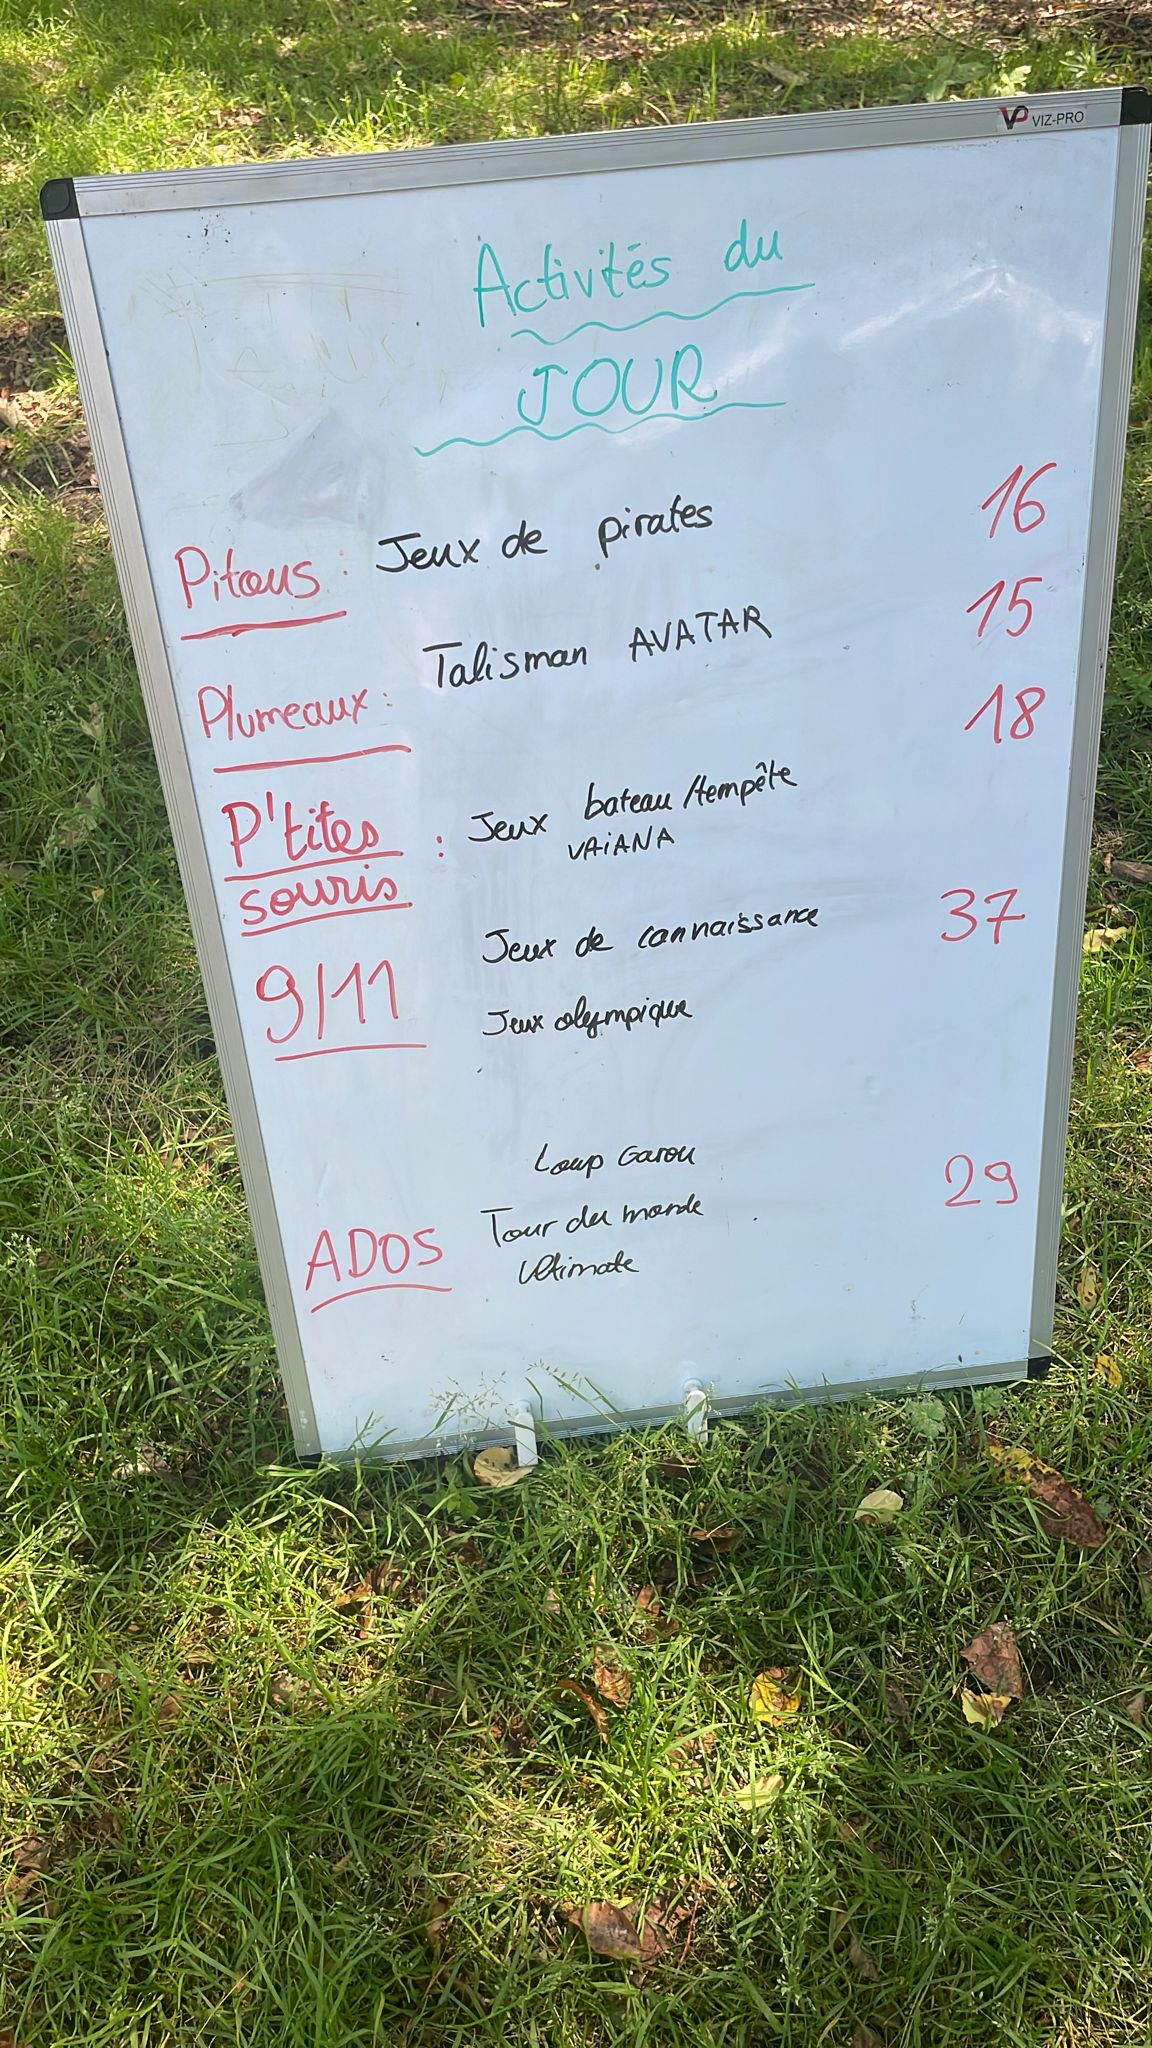 VP VIZ-PRO
Activités du
JOUR
Pitous : Jeux de pirates 16
Plumeaux : Talisman AVATAR 15
P'tites : Jeux bateau/tempête 18
souris VAiANA
9/11 Jeux de connaissance 37
Jeux olympique
Loup Garou
ADOS Tour du monde 29
Ultimate